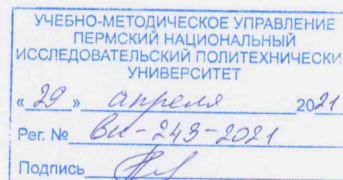 УЧЕБНО-МЕТОДИЧЕСКОЕ УПРАВЛЕНИЕ
ПЕРМСКИЙ НАЦИОНАЛЬНЫЙ
ИССЛЕДОВАТЕЛЬСКИЙ ПОЛИТЕХНИЧЕСКИ
УНИВЕРСИТЕТ
«29» апреля 2021
Рег. № Ви-243-2021
Подпись